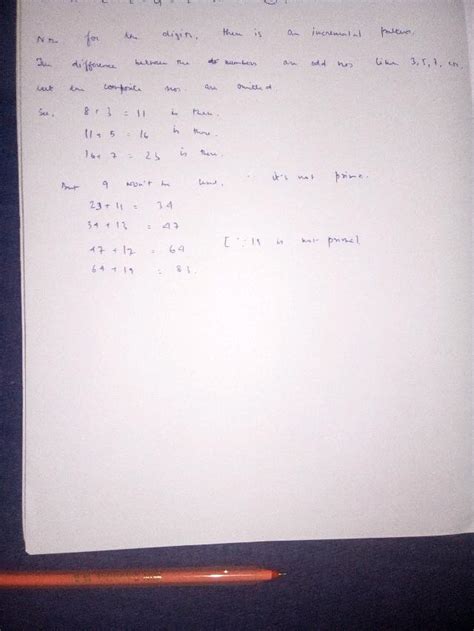 Now for the digits, there is an incremental pattern.
The difference between the numbers are odd nos like 3, 5, 7, etc.
but the composite nos. are omitted.
See, 8 + 3 = 11 is there.
11 + 5 = 16 is there.
16 + 7 = 23 is there.
But 9 won't be used. ∵ it's not prime.
23 + 11 = 34
34 + 13 = 47
47 + 17 = 64 [∵ 15 is not prime]
64 + 19 = 83.